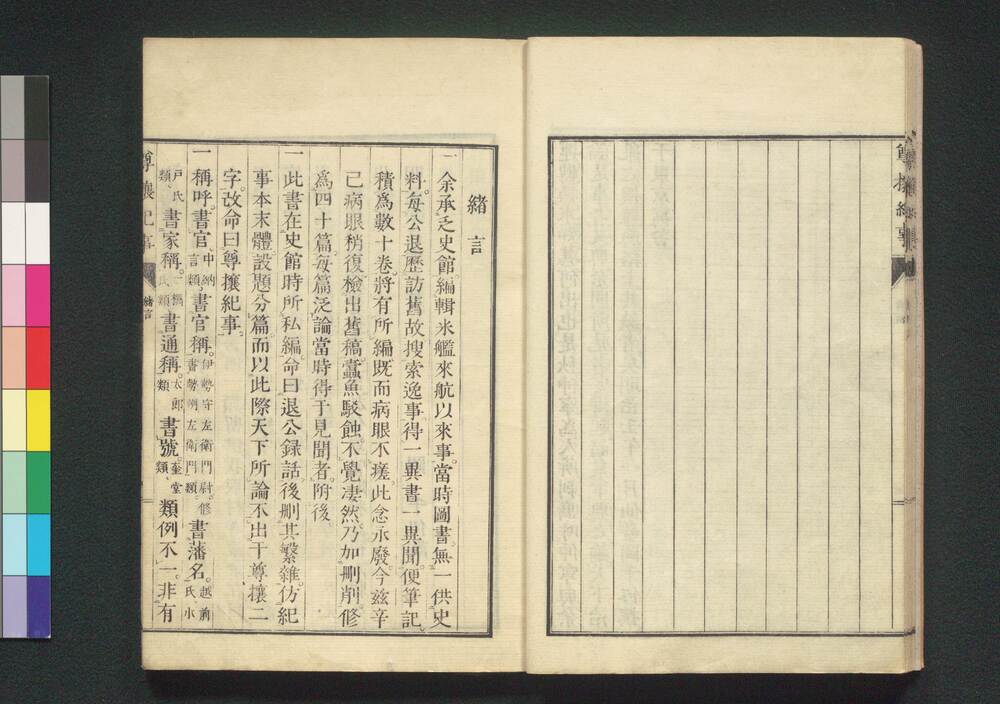 尊攘紀事
緒言
一 余承乏史館。編輯米艦來航以來事。當時圖書。無一供史
料。每公退歷訪舊故搜索逸事。得一異書一異聞。便筆記。
積爲數十卷。將有所編。既而病眼不瘥。此念永廢。今茲辛
已病眼稍復。檢出舊稿。蠹魚駁蝕。不覺凄然。乃加刪削修
爲四十篇。每篇泛論當時得于見聞者。附後。
一 此書在史館時所私編。命曰退公録話。後刪其繁雜。仿紀
事本末體。設題分篇。而以此際天下所論不出于尊攘二
字。改命曰尊攘紀事。
一 稱呼。書官、中納言類。書官稱。伊勢守左衛門尉。修書勢州左衛門類。書藩名。越前氏水
戸氏類。書家稱。一橋氏類書通稱。太郎類。書號奎堂類。類例不一。非有
尊攘紀事
緒言